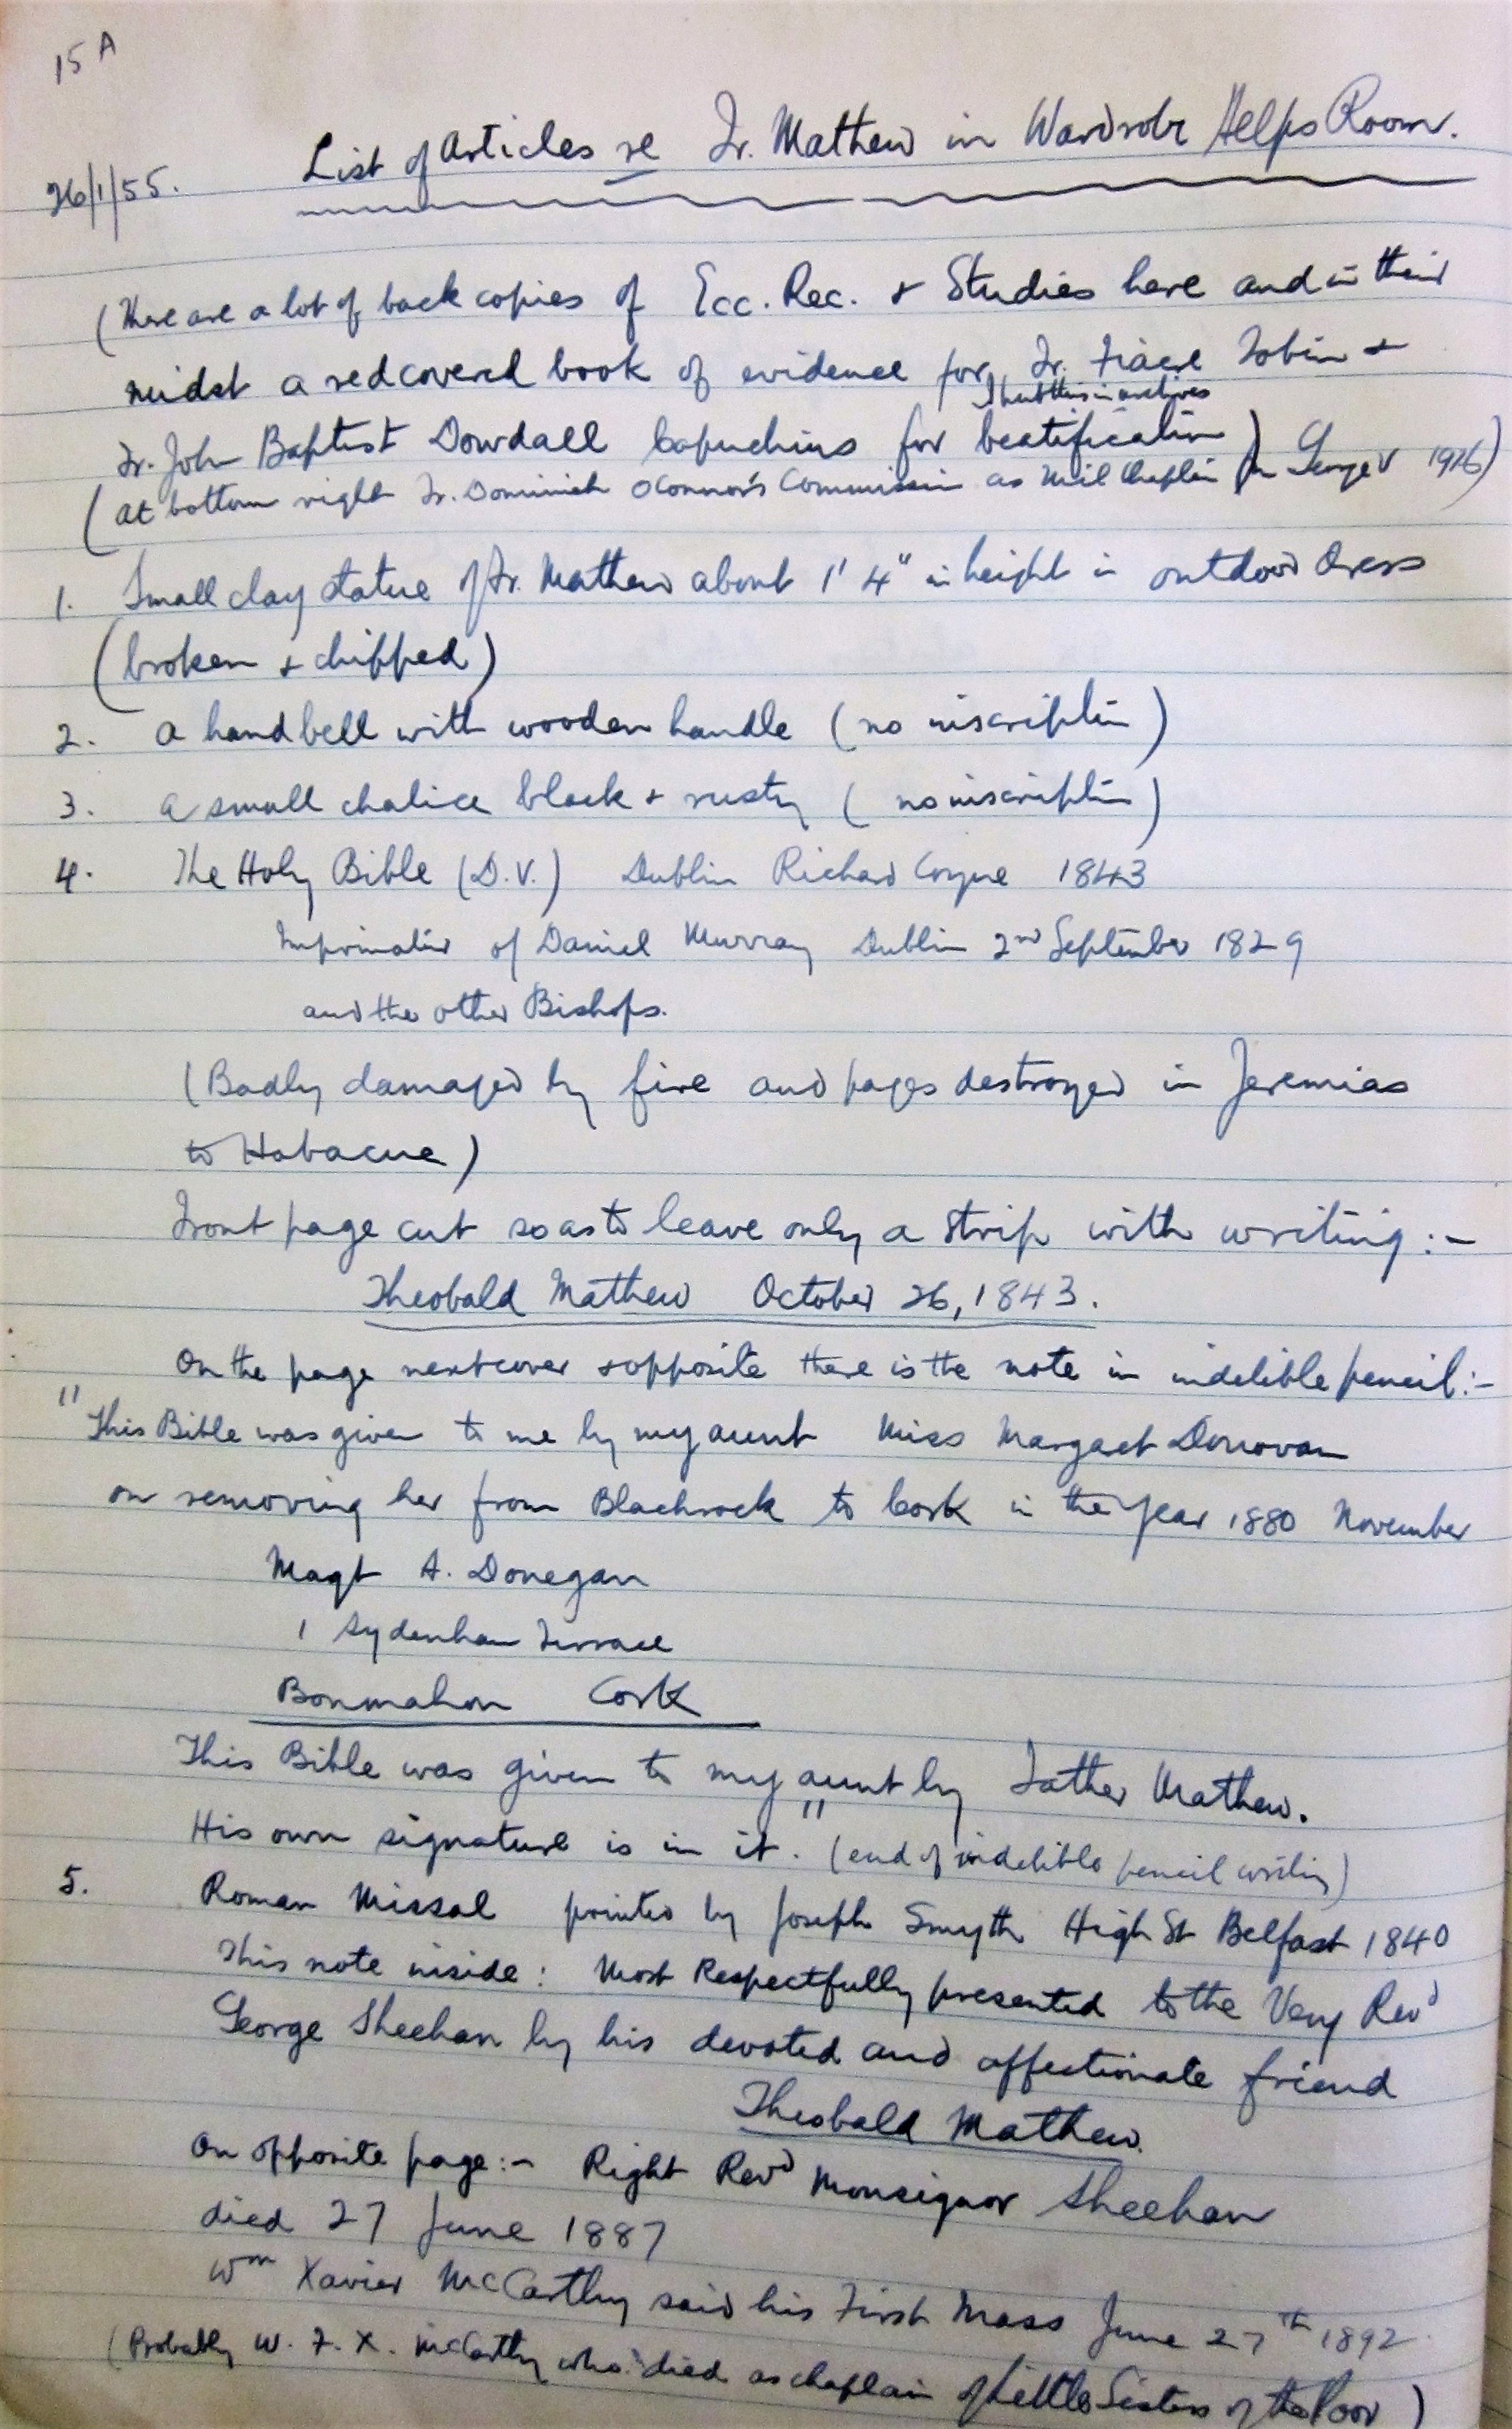 15 A
List of Articles re Fr. Mathew in Wardrobe Helps Room.
26/1/55.
(There are a lot of back copies of Ecc. Rec. & Studies here and in their
midst a red covered book of evidence for Fr. Fiacre Tobin &
I put this in archives
Fr. John Baptist Dowdall Capuchins for beatification)
(At bottom right Fr. Dominick OConnor's Commission as Mil Chaplin George V 1916)
1. Small clay statue of Fr. Mathew about 1' 4" in height in outdoor dress
(broken & chipped)
2. A hand bell with wooden handle (no inscription)
3. A small chalice black & rusty (no inscription)
4. The Holy Bible (D.V.) Dublin Richard Coyne 1843
Imprimatur of Daniel Murray Dublin 2nd September 1829
and the other Bishops.
(Badly damaged by fire and pages destroyed in Jeremias
to Habacuc)
Front page cut so as to leave only a strip with writing :-
Theobald Mathew October 26, 1843.
On the page next cover & opposite there is the note in indelible pencil :-
"This Bible was given to me by my aunt Miss Margaret Donovan
on removing her from Blackrock to Cork in the year 1880 November
Magt A. Donegan
1 Sydenham Terrace
Bonmahon Cork
This Bible was given to my aunt by Father Mathew.
His own signature is in it." (end of indelible pencil writing)
5. Roman Missal printed by Joseph Smyth High St Belfast 1840
This note inside : Most Respectfully presented to the Very Revd
George Sheehan by his devoted and affectionate friend
Theobald Mathew.
On opposite page :- Right Revd Monsignor Sheehan
died 27 June 1887
Wm Xavier McCarthy said his First Mass June 27th 1892
(Probably W. F. X. McCarthy who died as chaplain of Little Sisters of the Poor)